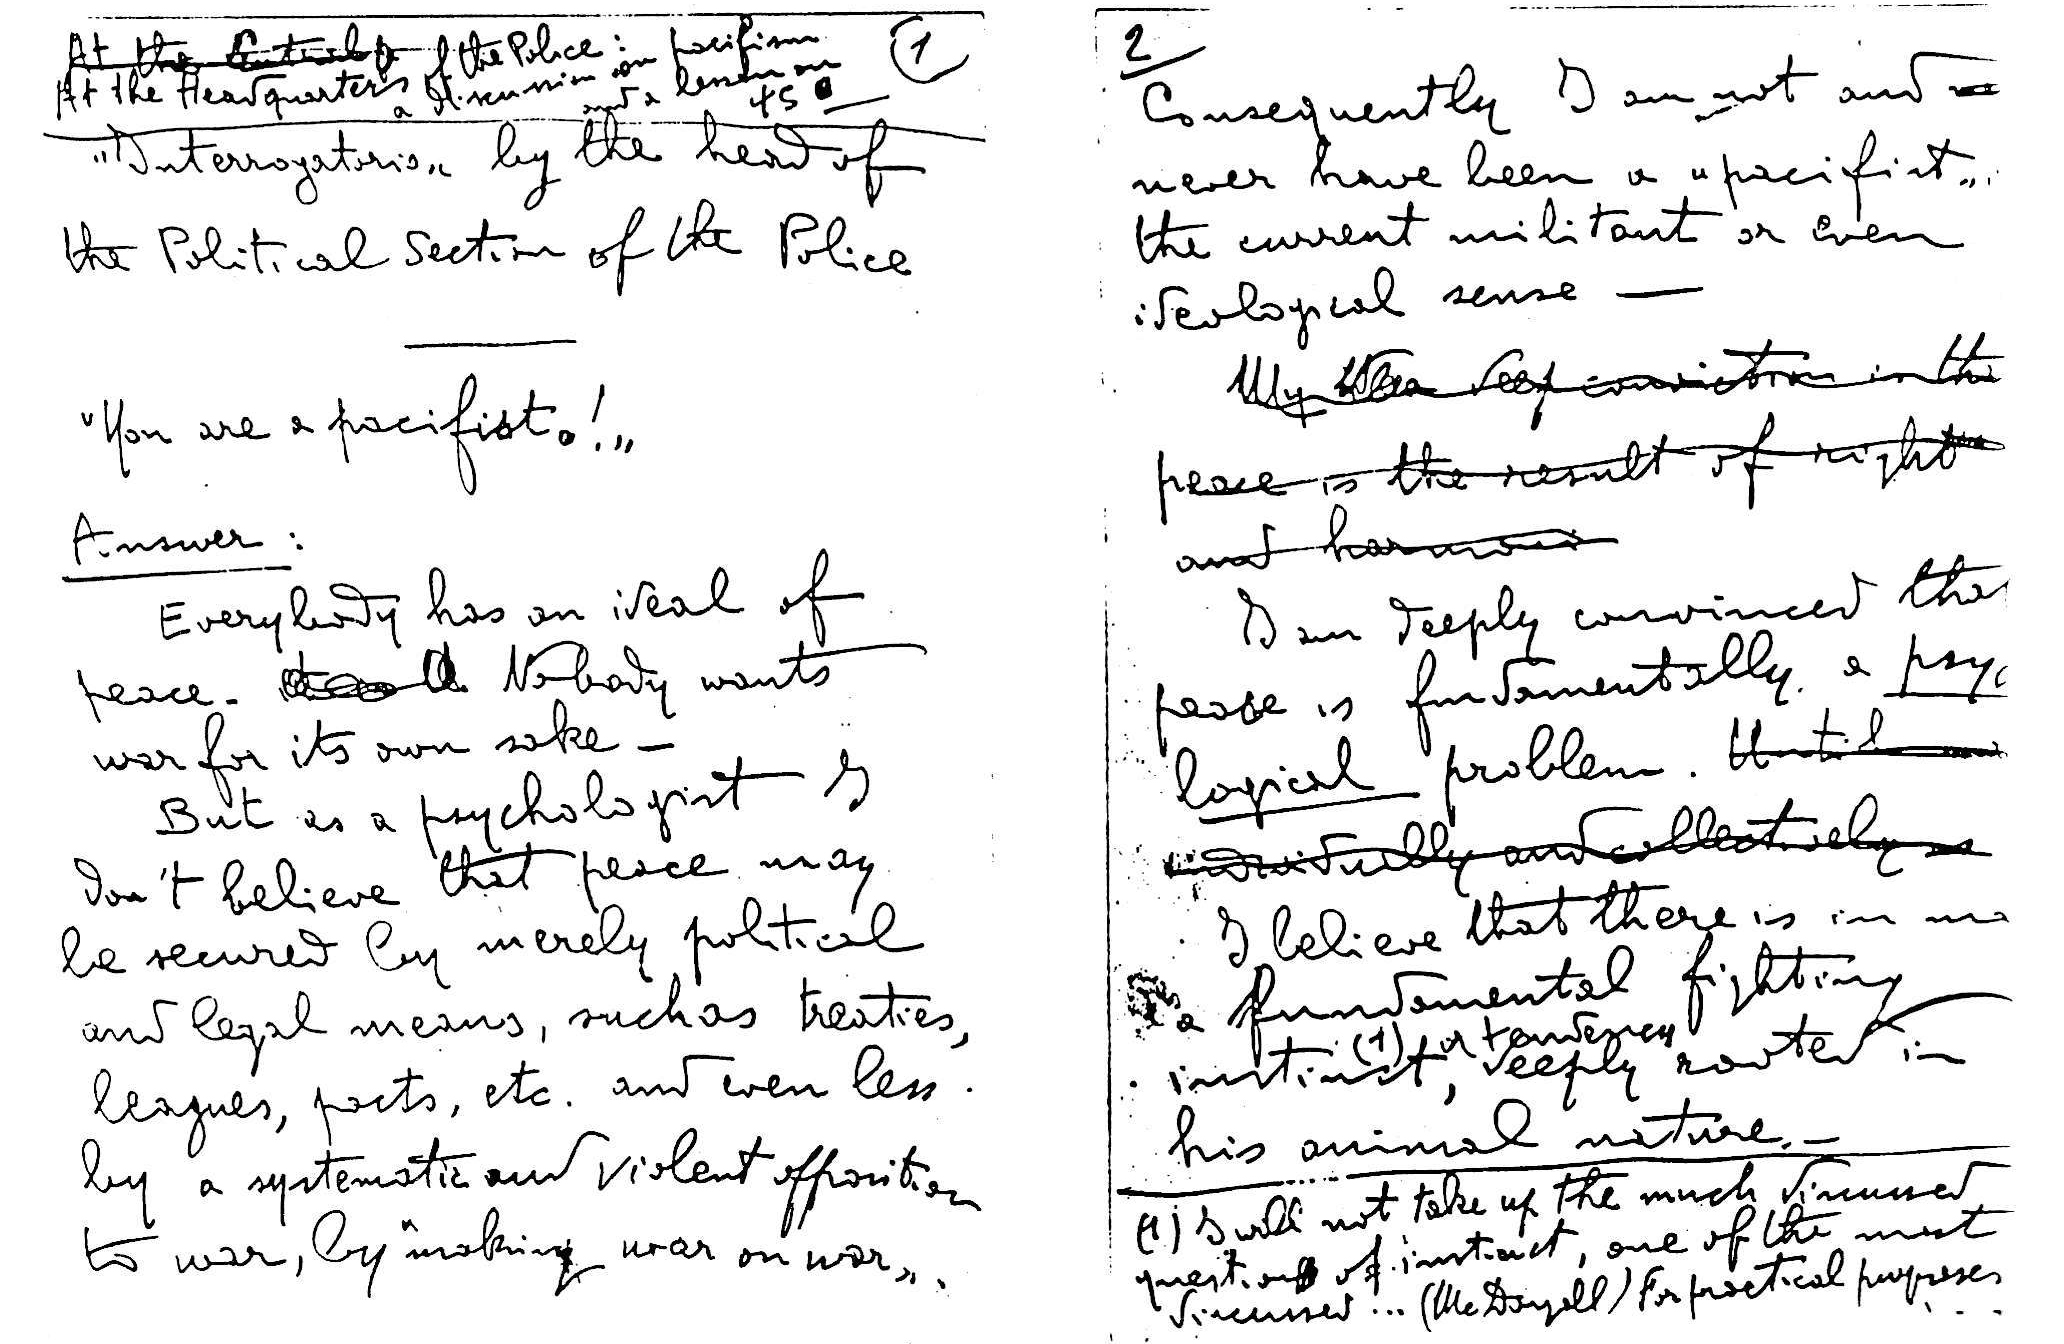 At the Central
At the Headquarters of the Police:
a discussion on pacifism
and a lesson on
45
1
"Interrogatorio„ by the head of
the Political Section of the Police
"You are a pacifist.!„
Answer:
Everybody has an ideal of
peace. Nobody wants
war for its own sake —
But as a psychologist I
don't believe that peace may
be secured by merely political
and legal means, such as treaties,
leagues, pacts, etc. and even less
by a systematic and violent opposition
to war, by "making war on war„.
2
Consequently I am not and
never have been a "pacifist„
the current militant or even
ideological sense —
My deep conviction is tha
peace is the result of right
and harmoni
I am deeply convinced tha
peace is fundamentally a psyc
logical problem. Until
individually and collectively
I believe that there is in ma
a fundamental fighting
instinct (1) or tendency, deeply rooted in
his animal nature. —
(1) I will not take up the much discussed
question of instinct, one of the most
discussed ... (McDougall) For practical purposes
...